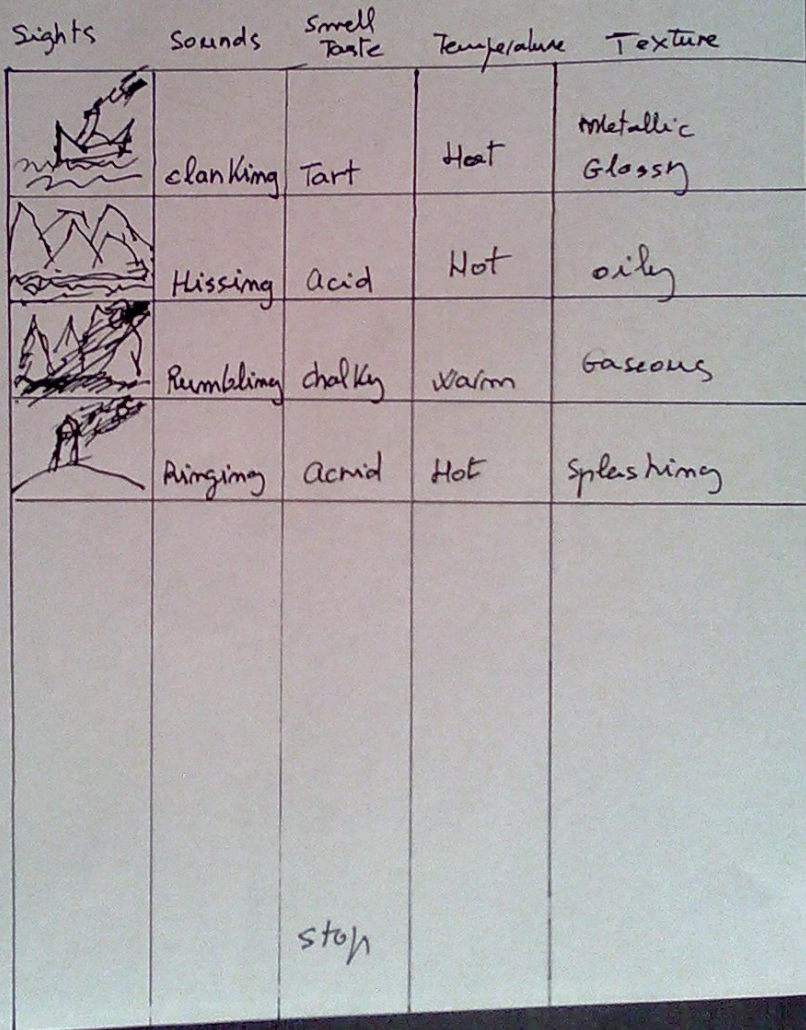 Sights Sounds Smell Taste Temperature Texture
clanking Tart Heat Metallic Glossy
Hissing acid Hot oily
Rumbling chalky warm Gaseous
Ringing acrid Hot splashing
stop